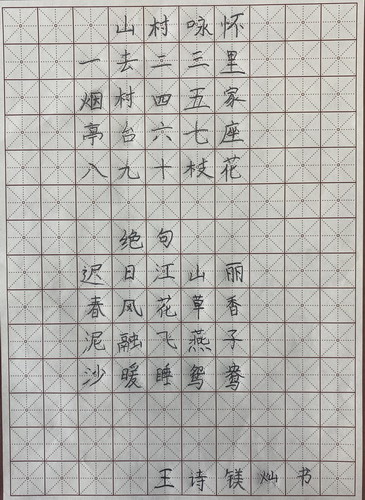 山村咏怀
一去二三里
烟村四五家
亭台六七座
八九十枝花
绝句
迟日江山丽
春风花草香
泥融飞燕子
沙暖睡鸳鸯
王诗镁灿书